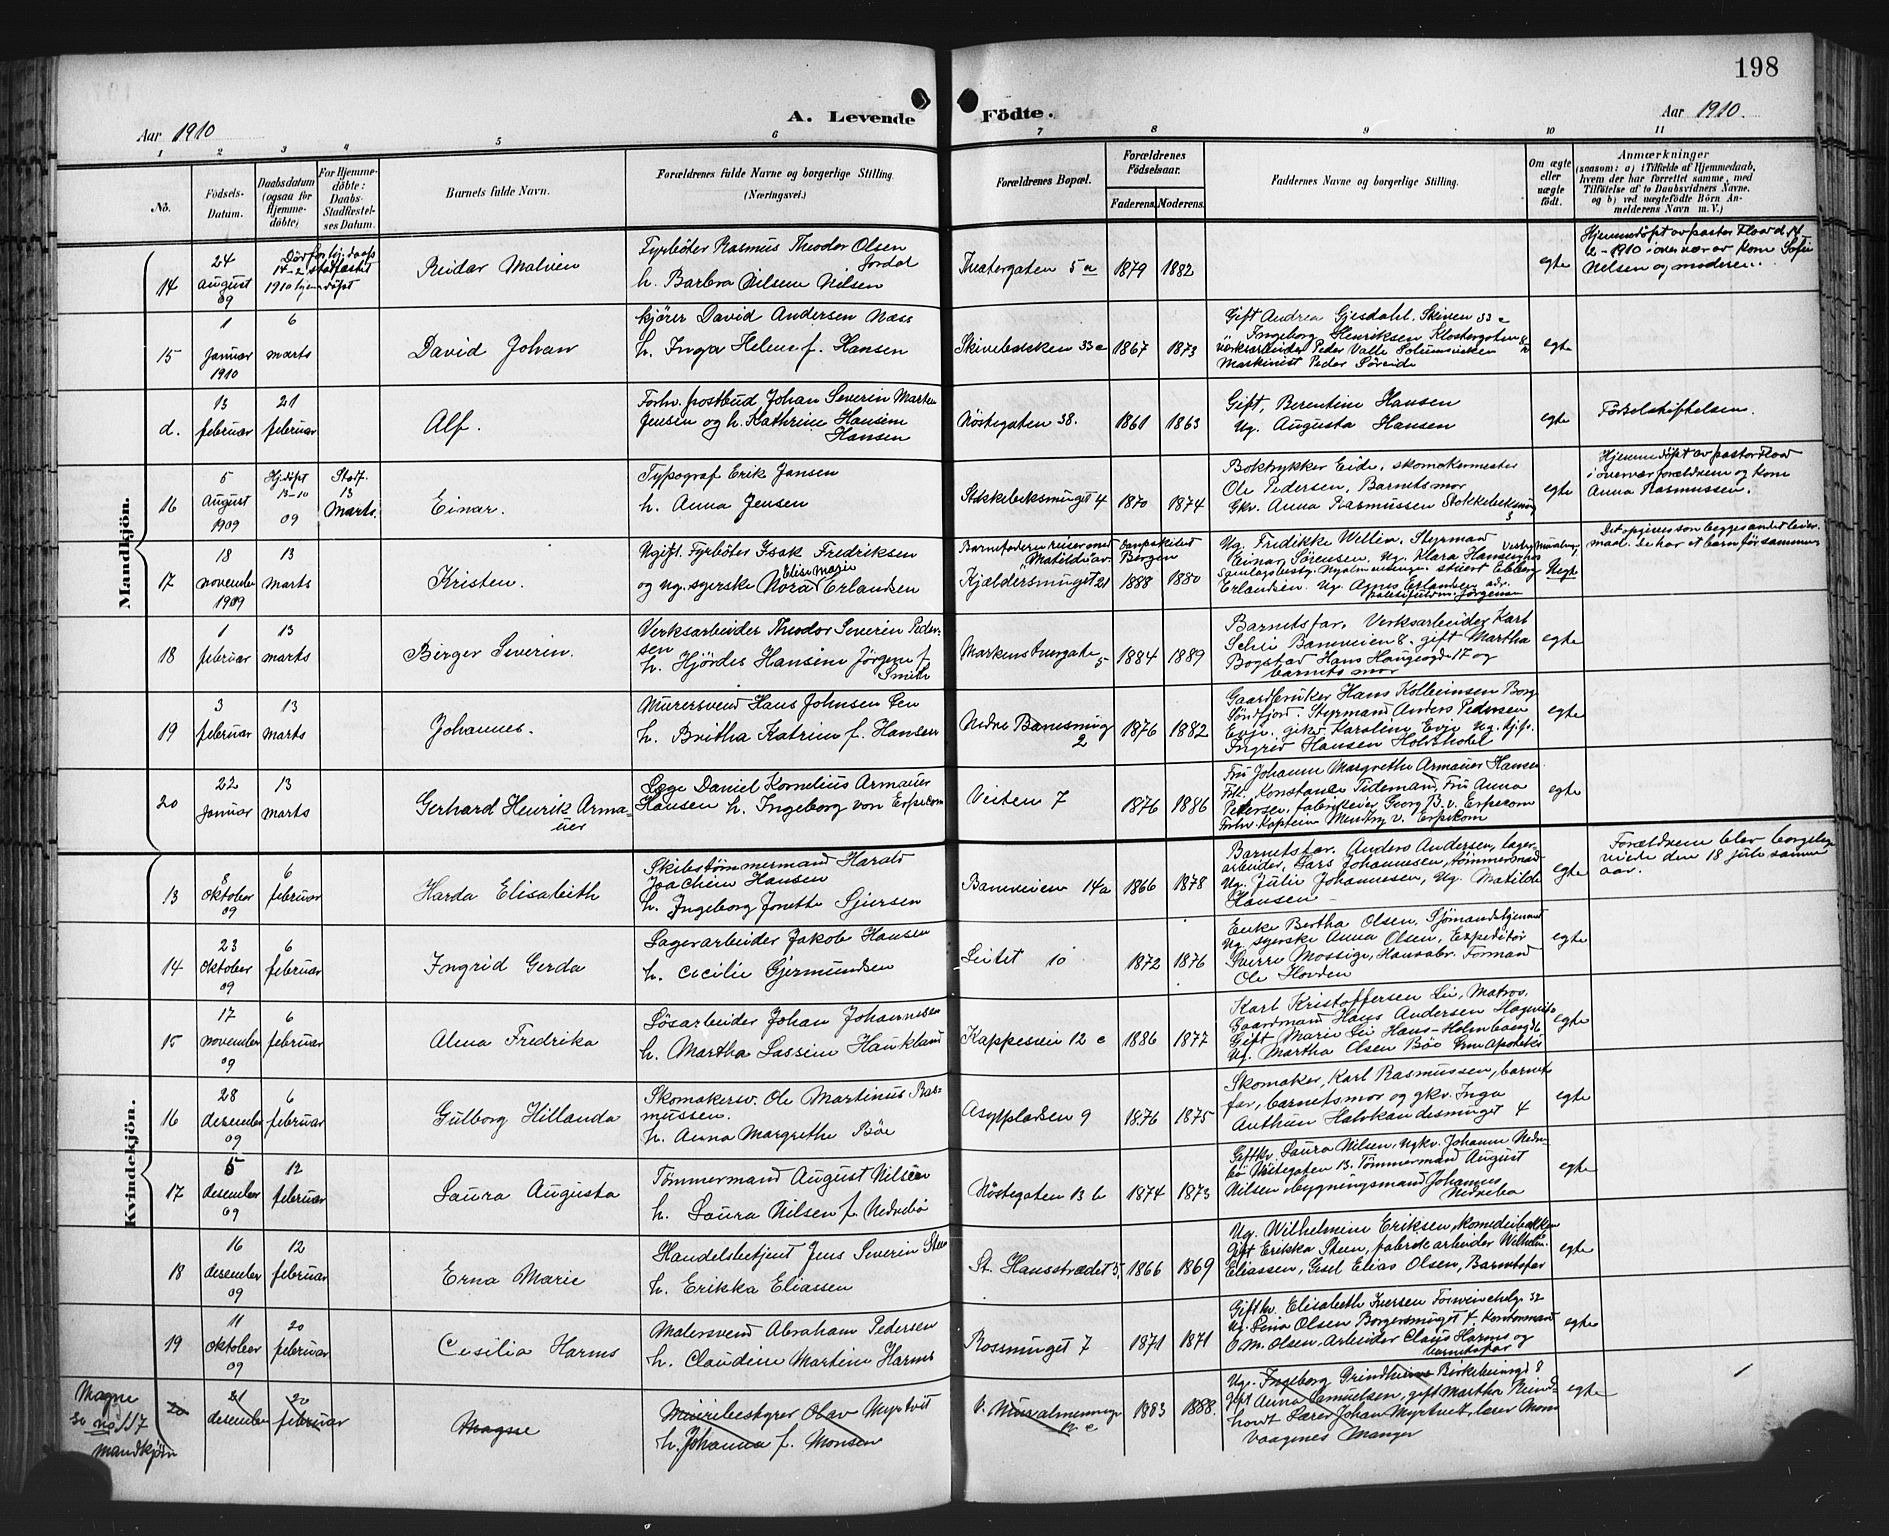 198
Aar 1910
A. Levende
Födte.
Aar 1910.
1 2 3 4 5 6 7 8 9 10 11
No.
Födsels-
Datum.
Daabsdatum
(ogsaa for
Hjemme-
döbte)
For Hjemme-
döbte:
Daabs-
Stadfæstel-
ses Datum.
Barnets fulde Navn.
Forældrenes fulde Navne og borgerlige Stilling.
(Næringsvei.)
Forældrenes Bopæl.
Forældrenes
Födselsaar.
Faderens.
Moderens.
Faddernes Navne og borgerlige Stilling.
Om ægte
eller
uægte
födt.
Anmærkninger
(saasom: a) i Tilfælde af Hjemmedaab,
hvem der har forrettet samme, med
Tilföielse af to Daabsvidners Navne.
og b) ved uægtefödte Börn An-
melderens Navn m. V.)
Mandkjön.
14
24
august
09
14-2
1910
Reidar Malvin
Fyrbøter Rasmus Theodor Olsen
Jordal
h. Barbra Nilsine Nilsen
Theatergaten 5a
1879
1882
egte
Hjemmedøpt av pastor Flood d. 14
2-1910 i overvær av kone Sofie
Nilsen og moderen.
15
1
januar
1910
6
marts
David Johan
kjører David Andersen Næss
h. Inga Helene f. Hansen
Skivebakken 33a
1867
1873
Gift Andrea Gjesdahl. Skiven 33a
Ingeborg Henriksen Klostergaten
verksarbeider Peder Valle
Maskinist Peder
egte
d.
13
februar
21
februar
Alf.
Forhv. postbud Johan Severin Martin
Jensen og h. Kathrine Hansine
Hansen
Nöstegaten 38.
1861
1863
Gift, Berentine Hansen
Ug. Augusta Hansen
egte
Fødselsstiftelsen.
16
5
August
1909
Hj.døpt
13-10
09
Stadf.
13
Marts.
Einar.
Typograf Erik Jansen
h. Anna Jensen
Stokkebeksmuget 4
1870
1874
Boktrykker Eide, skomakermester
Ole Pedersen, Barnets mor
Gkv. Anna Rasmussen Stokkebeksmug
3
egte
Hjemmedøpt av pastor Flood
i overvær forældrene og kone
Anna Rasmussen.
17
18
november
1909
13
marts
Kristen.
Ugift. Fyrbøter Isak Fredriksen
Elise Marie
og ug. syerske Nora Erlandsen
Barnefaderen reiser med
"Matilde" av Bergen
Kjældersmuget 21
1888
1880
Ug. Fredikke Wellin, Styrmand
Einar Sörensen, Ug. Klara Hansen
Erlandsen. Ug. Agnes Erlandsen adr.
Uegte
Det opgives som begges andet leier-
maal. De har et barn før sammen
18
1
februar
13
marts
Birger Severin.
Verksarbeider Theodor Severin Peder-
sen
h. Hjördis Hansine Jörgine f.
Smith
Markens tvergate
5
1884
1889
Barnets far. Verksarbeider Karl
Schei Banveien 8. gift Martha
Bogstad Hans Haugesgd. 17 og
barnets mor
egte
19
3
februar
13
marts
Johannes.
Murersvend Hans Johnsen Len
h. Britha Katrine f. Hansen
Nedre Banesmug
2
1876
1882
Gaardbruker Hans Kolbeinsen Borg
Söndfjord. Styrmand Anders Pedersen
Evje. gikv. Karoline Evje Ug. tj.p.
Ingrid Hansen Holdthotel
egte
20
22
januar
13
marts
Gerhard Henrik Arma-
uer
Læge Daniel Kornelius Armauer
Hansen h. Ingeborg von Erpecom
Veiten 7
1876
1886
Fru Johanne Margrethe Armauer Hansen
Frk. Konstance Tidemand, Fru Anna
Petersen, fabrikeier Georg B. v. Erpecom
Forhv. Kaptein Mentz v. Erpecom
egte
Kvindekjön.
13
8
oktober
09
6
februar
Harda Elisabeth
Skibstømmermand Harald
Joachim Hansen
h. Ingeborg Jonette Sjursen
Banveien 14a
1866
1878
Barnets far. Anders Andersen, lager-
arbeider, Lars Johannesen, tömmermand
Ug. Julie Johannesen, Ug. Matilde
Hansen
egte
Forældrene blev borgelig
viede den 18 juli samme
aar.
14
23
oktober
09
6
februar
Ingrid Gerda
Lagerarbeider Jakob Hansen
h. Cecilie Gjermundsen
Leitet 10
1872
1876
Enke Bertha Olsen, Sjömandshjemmet
Ug. syerske Anna Olsen, Expeditör
Sverre Mossige, Hansabr. Formand
Ole Hovden
egte
15
17
november
09
6
februar
Alma Fredrika
Løsarbeider Johan Johannesen
h. Martha Lassine Haukland
Kappesvei 12 c
1886
1877
Karl Kristoffersen Lie, Matros,
Gaardmand Hans Andersen
Gift Marie Lie Hans-Holmboegd. 6
Ug. Martha Olsen Böe
egte
16
28
desember
09
6
februar
Gulborg Hillanda
Skomakersv. Ole Martinus Ras-
mussen.
h. Anna Margrethe Böe
Asylpladsen 9
1876
1875
Skomaker, Karl Rasmussen, barnets
far, barnets mor og gkv. Inga
Anthun Halvkandesmuget 4
egte
17
5
desember
09
12
februar
Laura Augusta
Tömmermand August Nilsen
h. Laura Nilsen f. Nedrebö
Nöstegaten 13 b
1874
1873
Giftkv. Laura Nilsen, Ugkv. Johanne Nedre-
bö Nöstegaten 13. Tömmermand August
Nilsen bygningsmand Johannes
Nedrebö
egte
18
16
desember
09
12
februar
Erna Marie
Handelsbetjent Jens Severin Steen
h. Erikka Eliassen
St. Hansstrædet 5.
1866
1869
Ug. Wilhelmine Eriksen, komediebakken
Gift Erikka Steen, fabrikarbeider Wilhelm
Eliassen, Gesel Elias Olsen, Barnets far
egte
19
11
oktober
09
20
februar
Cesilia Harms
Malersvend Abraham Pedersen
h. Claudine Martine Harms
Rosesmuget 7
1871
1871
Giftkv. Elisabeth Iversen 32
Ug. Lina Olsen Borgersmuget 4. Kontormand
O. M. Olsen. arbeider Claus Harms og
barnets far
egte
Magne
se no 117
mandkjön
20
21
desember
20
februar
Magne
Meieribestyrer Olav Myrtvet
h. Johanna f. Monsen
V. Muralmenning
1883
1888.
Ug. Ingeborg Grindheim Birkebeinergd. 8
Gift Anna Samuelsen, gift Martha
Lærer Johan Myrtvet, lærer Mons
Vaagenes Manger
egte